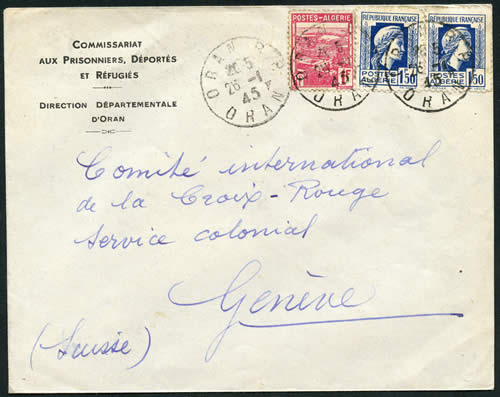 COMMISSARIAT
AUX PRISONNIERS, DÉPORTÉS
ET RÉFUGIÉS
DIRECTION DÉPARTEMENTALE
D'ORAN
ORAN R.P.
20 5
26-1
45
ORAN
POSTES-ALGERIE
1F
RÉPUBLIQUE FRANÇAISE
POSTES
ALGERIE
1F50
RÉPUBLIQUE FRANÇAISE
POSTES
ALGERIE
1F50
ORAN
ORAN
Comité international
de la Croix-Rouge
service colonial
Genève
(Suisse)